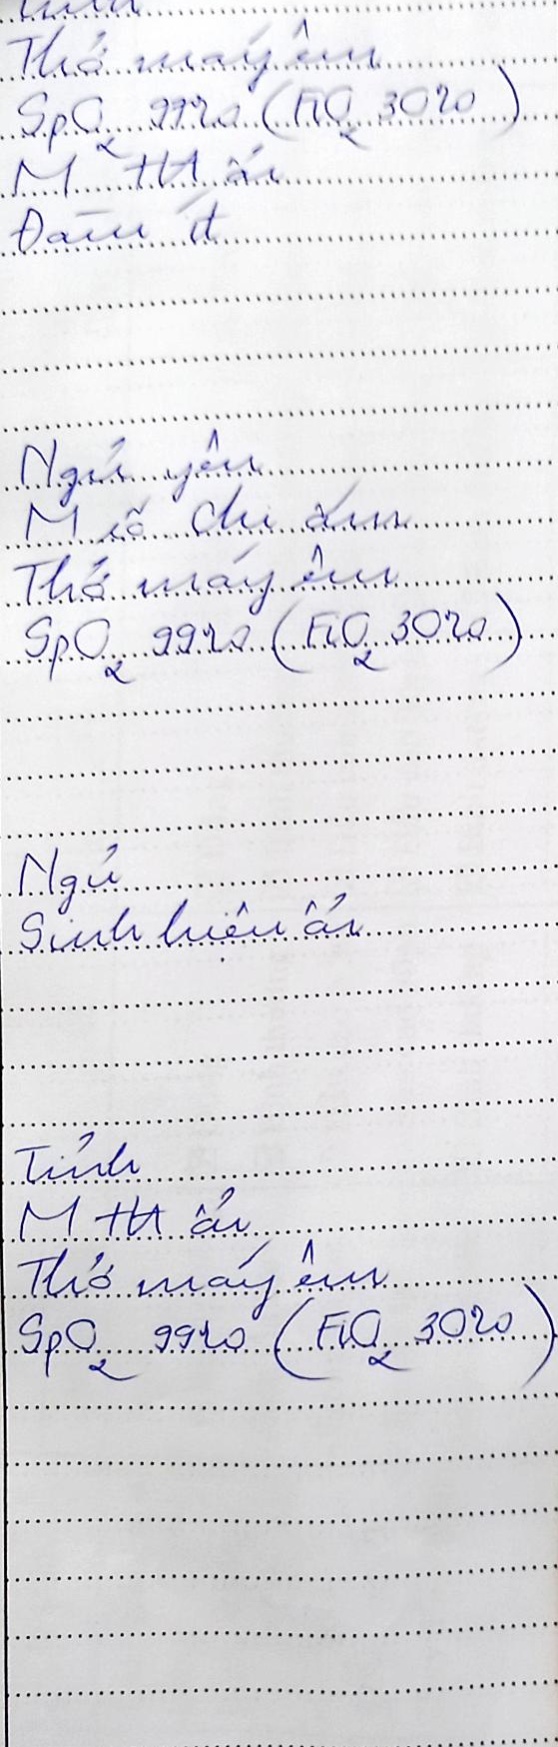 Thở máy êm
SpO2 99% (FiO2 30%)
M HA ổn
Đàm ít
Ngủ yên
M rõ Chi ấm
Thở máy êm
SpO2 99% (FiO2 30%)
Ngủ
Sinh hiệu ổn
Tỉnh
M HA ổn
Thở máy êm
SpO2 99% (FiO2 30%)